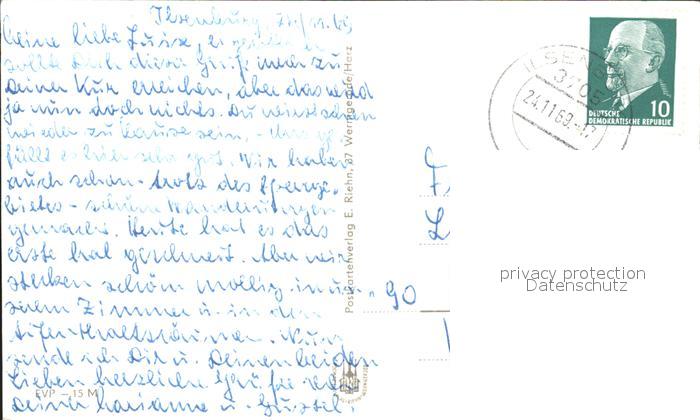 Ilsenburg, 23/11.69
Meine liebe Luise,
sollte Dich dieser Gruß zu
Deiner Kur erreichen, aber das wird
ja nun doch nichts. Du wirst schon
wieder zu Hause sein. -
fällt es hier sehr gut. Wir haben
auch schon - trotz des Sperrge-
bietes - schöne Wanderungen
gemacht. Heute hat es das
erste Mal geschneit. Aber wir
stecken schön mollig in un-
serem Zimmer u. in den
Aufenthaltsräumen. Nun
sende ich Dir u. Deinen beiden
Lieben herzliche Grüße
Deine Marianne u. Gustel.
EVP – 15 M
Postkartenverlag E. Riehn, 37 Wernigerode/Harz
ILSENBURG
3705
24.11.69.-17
10
DEUTSCHE
DEMOKRATISCHE REPUBLIK
90
privacy protection
Datenschutz